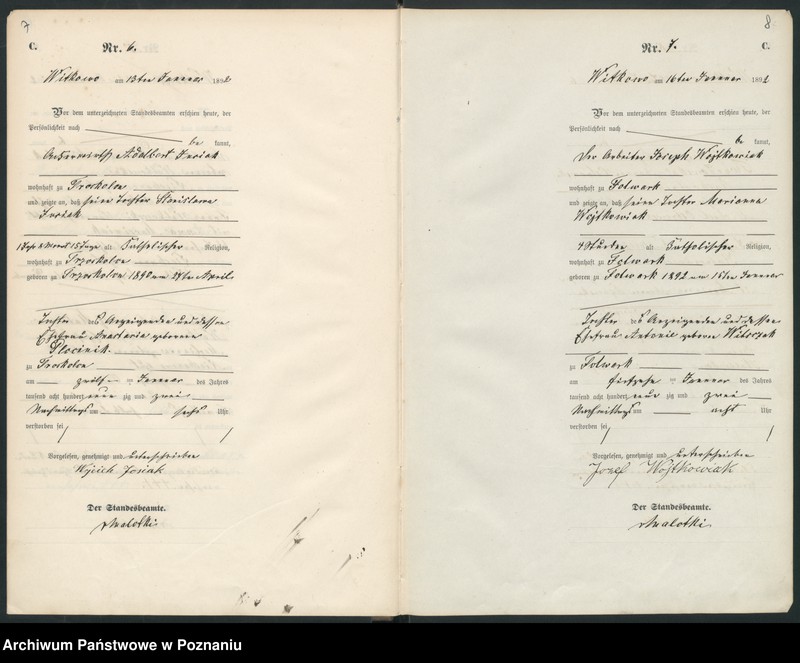 7
C.
Nr. 6.
Witkowo am 13ten Januar 1892
Vor dem unterzeichneten Standesbeamten erschien heute, der
Persönlichkeit nach
be kannt,
Adalbert Jusiak
wohnhaft zu
und zeigte an, daß seine Tochter Stanislawa
Jusiak
15 Tage alt Katholischer Religion,
wohnhaft zu Trzoskolon
geboren zu Trzoskolon 1890 am April
Tochter des Anzeigenden und dessen
Ehefrau Anastasia geborene
zu
am zwölften Januar des Jahres
tausend acht hundert neun zig und zwei
Nachmittags um sechs Uhr
verstorben sei
Vorgelesen, genehmigt und unterschrieben
Wojciech Josiak
Der Standesbeamte.
Malotki
8
Nr. 7.
C.
Witkowo am 16ten Januar 1892
Vor dem unterzeichneten Standesbeamten erschien heute, der
Persönlichkeit nach
be kannt,
Der Arbeiter Joseph Wojtkowiak
wohnhaft zu Folwark
und zeigte an, daß seine Tochter Marianna
Wojtkowiak
4 Stunden alt Katholischer Religion,
wohnhaft zu Folwark
geboren zu Folwark 1892 am Januar
Tochter des Anzeigenden und dessen
Ehefrau Antonie geborene Witczak
zu Folwark
am Januar des Jahres
tausend acht hundert neun zig und zwei
Nachmittags um acht Uhr
verstorben sei
Vorgelesen, genehmigt und unterschrieben
Jozef Wojtkowiak
Der Standesbeamte.
Malotki
Archiwum Państwowe w Poznaniu